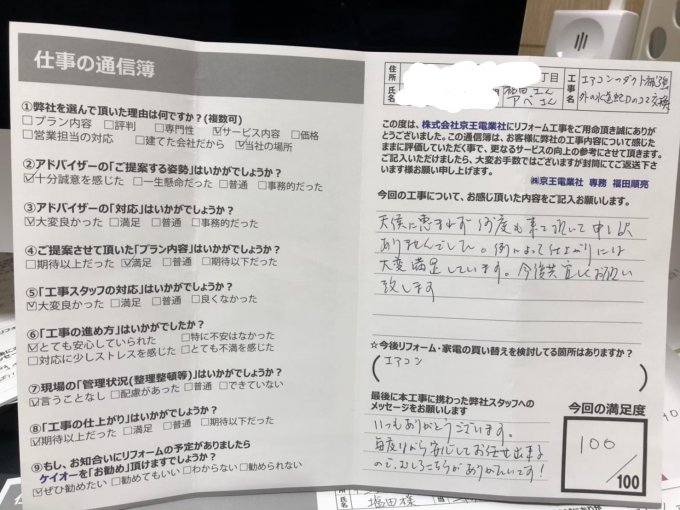 仕事の通信簿
①弊社を選んで頂いた理由は何ですか?(複数可)
□プラン内容 □評判 □専門性 ☑サービス内容 □価格
□営業担当の対応 □建てた会社だから ☑当社の場所
②アドバイザーの「ご提案する姿勢」はいかがでしょうか?
☑十分誠意を感じた □一生懸命だった □普通 □事務的だった
③アドバイザーの「対応」はいかがでしょうか?
☑大変良かった □満足 □普通 □事務的だった
④ご提案させて頂いた「プラン内容」はいかがでしょうか?
□期待以上だった ☑満足 □普通 □期待以下だった
⑤「工事スタッフの対応」はいかがでしょうか?
☑大変良かった □満足 □普通 □良くなかった
⑥「工事の進め方」はいかがでしたか?
☑とても安心していられた □特に不安はなかった
□対応に少しストレスを感じた □とても不満を感じた
⑦現場の「管理状況(整理整頓等)」はいかがでしょうか?
☑言うことなし □配慮があった □普通 □できていない
⑧「工事の仕上がり」はいかがでしょうか?
☑期待以上だった □満足 □普通 □期待以下だった
⑨もし、お知合いにリフォームの予定がありましたら
ケイオーを「お勧め」頂けますでしょうか?
☑ぜひ勧めたい □勧めてもいい □わからない □勧められない
住所
丁目
氏名
福田さん
アベさん
工事名
エアコンのダクト補強
外の水道蛇口のコマ交換
この度は、株式会社京王電業社にリフォーム工事をご用命頂き誠にありが
とうございました。この通信簿は、お客様に弊社の工事内容について感じた
ままに評価していただく事で、更なるサービスの向上の参考にさせて頂きます。
ご記入いただけましたら、大変お手数ではございますが封筒にてご返送下さ
います様お願い申し上げます。
㈱京王電業社 専務 福田順亮
今回の工事について、お感じ頂いた内容をご記入お願いします。
天候に恵まれず 何度も来て頂いて申し訳
ありませんでした。例によって仕上がりには
大変満足しています。今後共宜しくお願い
致します
☆今後リフォーム・家電の買い替えを検討してる箇所はありますか?
(エアコン)
最後に本工事に携わった弊社スタッフへの
メッセージをお願いします
いつもありがとうございます。
毎度ながら安心してお任せ出来る
ので、むしろこちらがありがたいです!
今回の満足度
100
/100
氏名
塩田様